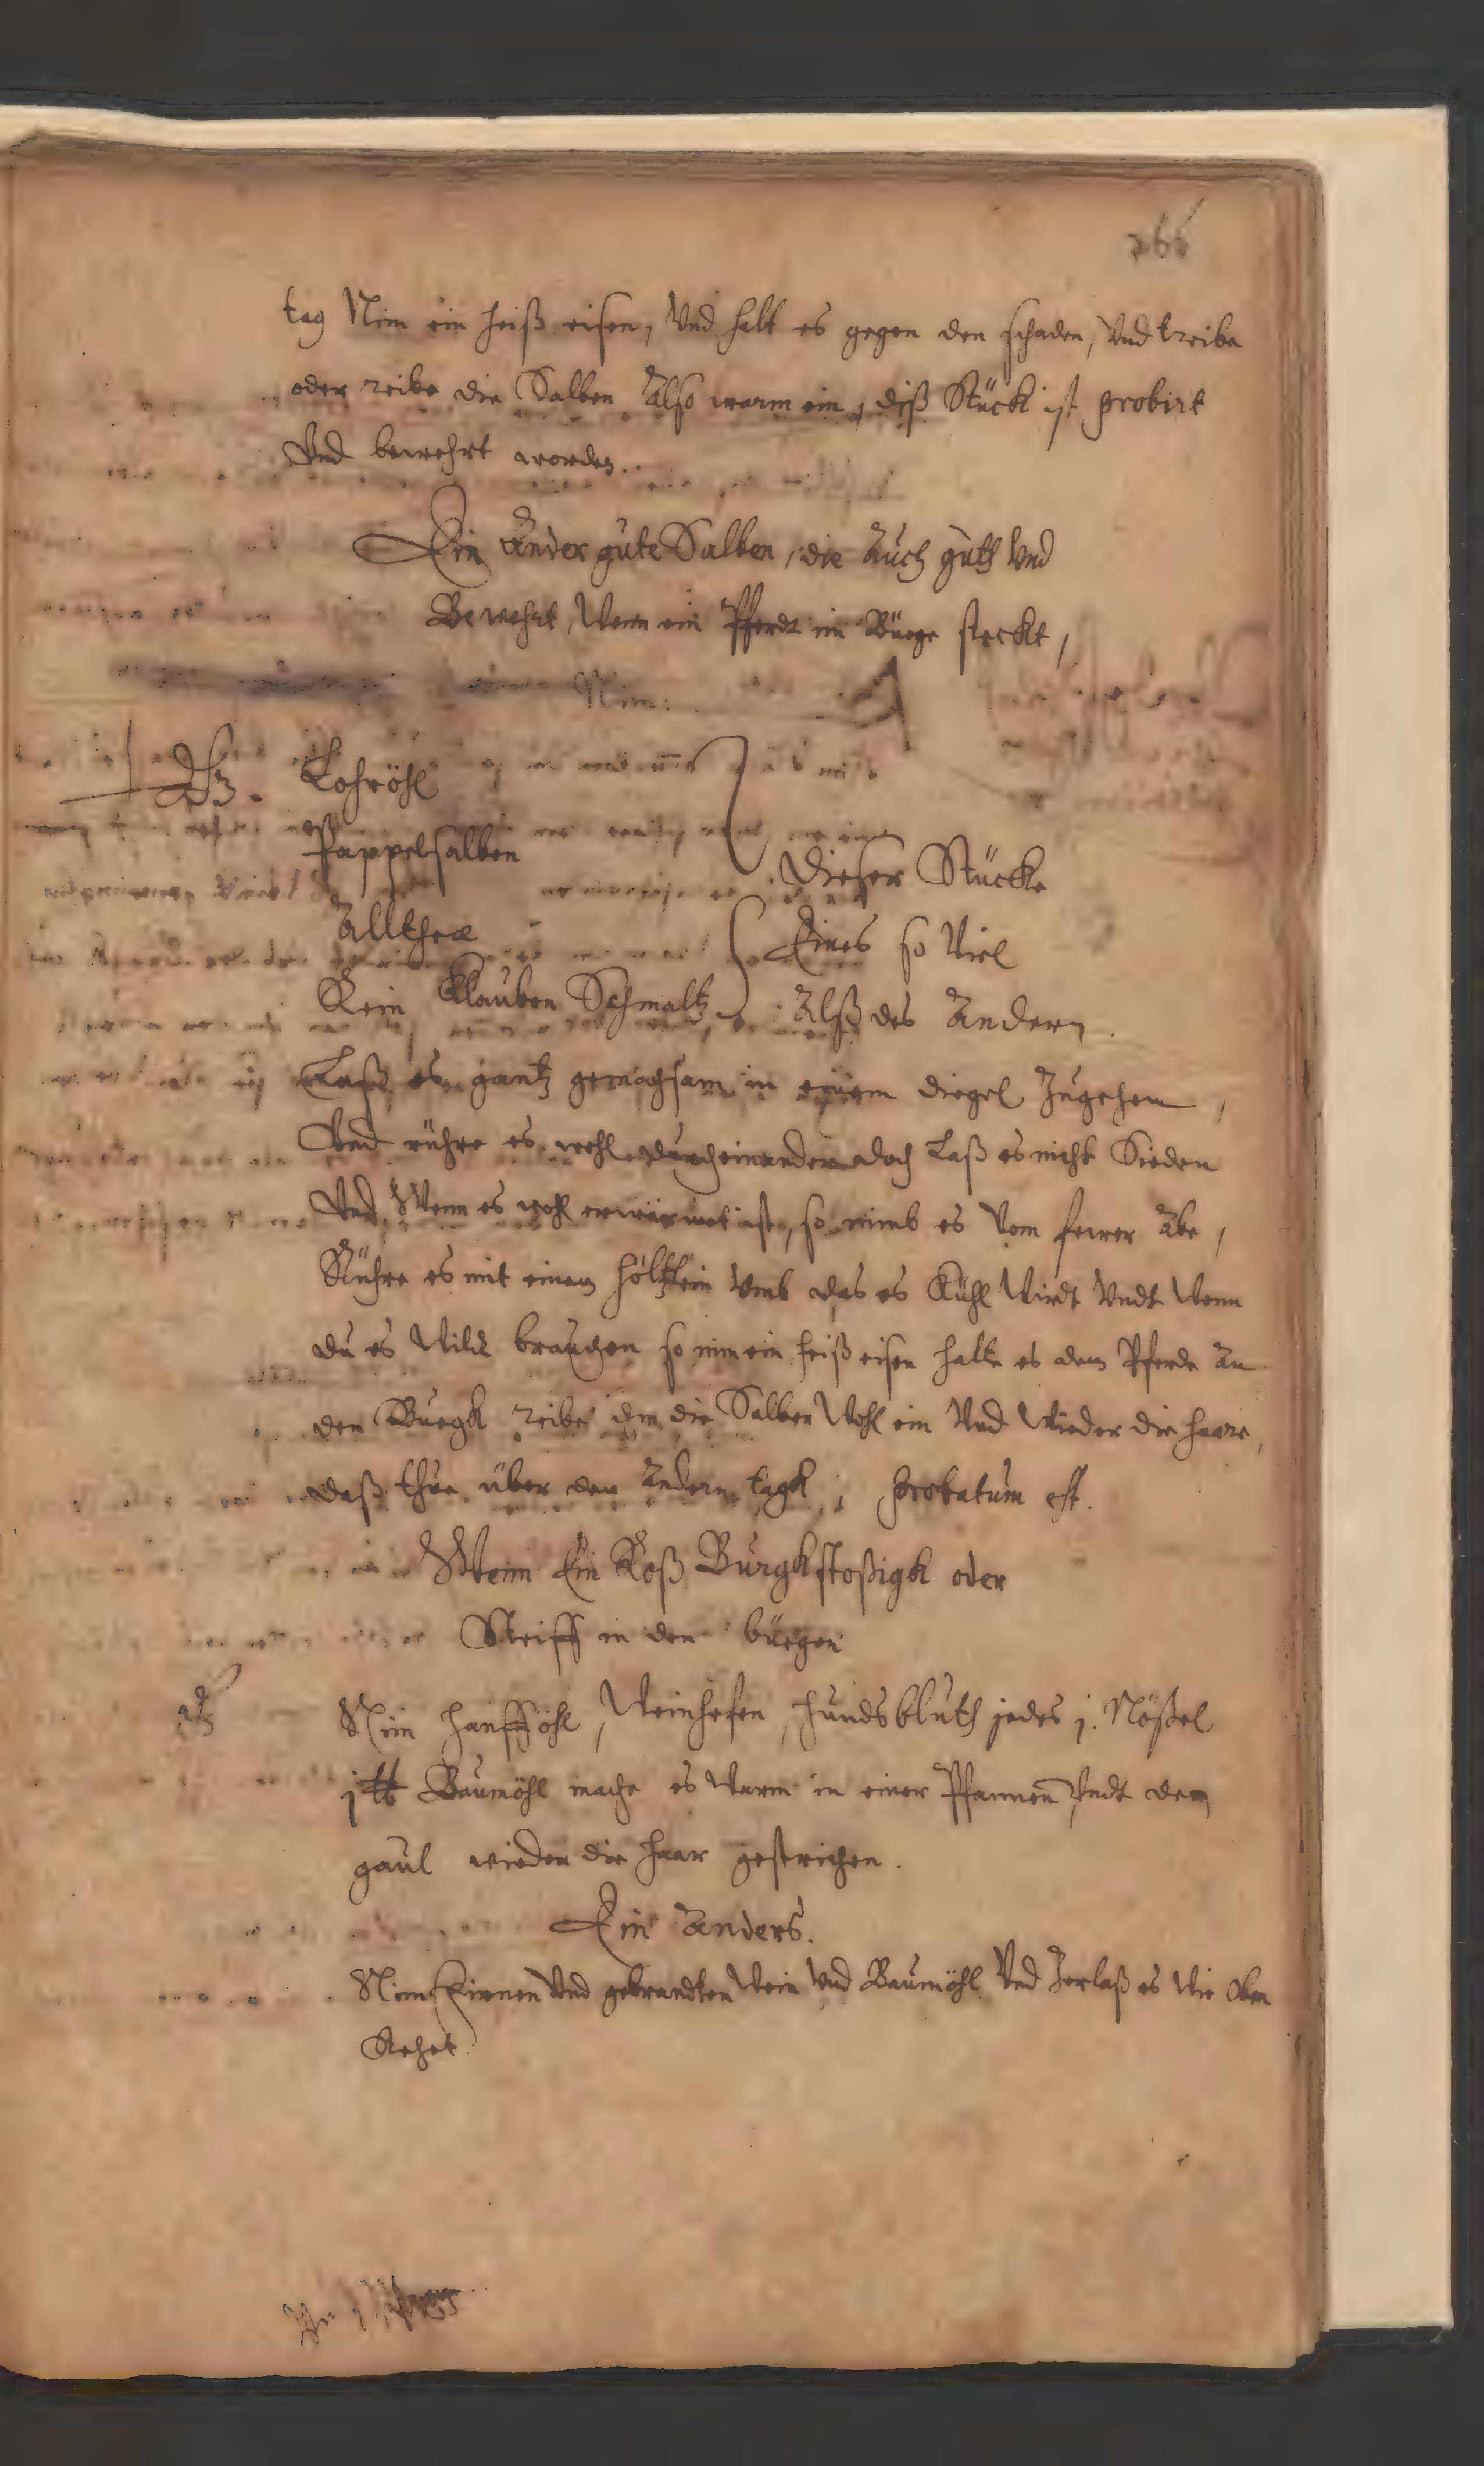 262
tag Nim ein heiß eisen, Vnd halt es gegen den schaden, Vnd treibe
oder reibe die Salben Also warm ein, diß Stück ist probirt
Vnd bewehrt worden.
Ein Ander gute Salben, die Auch guth Vnd
Bewehrt, Wenn ein Pferdt im Büege steckt,
Nim:
Lohröhl
Pappelsalben
Allthea
Rein Klauben Schmaltz
Dieser Stücke
Eines so Viel
Alß des Andern
Laß es gantz gemachsam in einem diegel Zugehen,
Vnd rühre es wohl durcheinander doch Laß es nicht Sieden
Vnd Wenn es wohl erwärmet ist, so nimb es Vom feuer Abe,
Rühre es mit einem höltzlein Vmb das es Kühl Wirdt Vndt Wenn
du es Wilst brauchen so nim ein heiß eisen halte es dem Pferde An
den Buegk reibe ihm die Salben Wohl ein Vnd Wieder die haare,
daß thue über den Andern tagk, probatum est.
Wenn Ein Roß Burgkstoßigk oder
Steiff in den büegen
Nim hanfföhl, Weinhefen, hundsbluth jedes j. Nößel
j ℔ Baumöhl mache es Warm in einer Pfannen Vndt dem
gaul wieder die haar gestrichen.
Ein Anders.
Nim Kienen Vnd gebrandten Wein Vnd Baumöhl Vnd Zerlaß es Wie Oben
Stehet